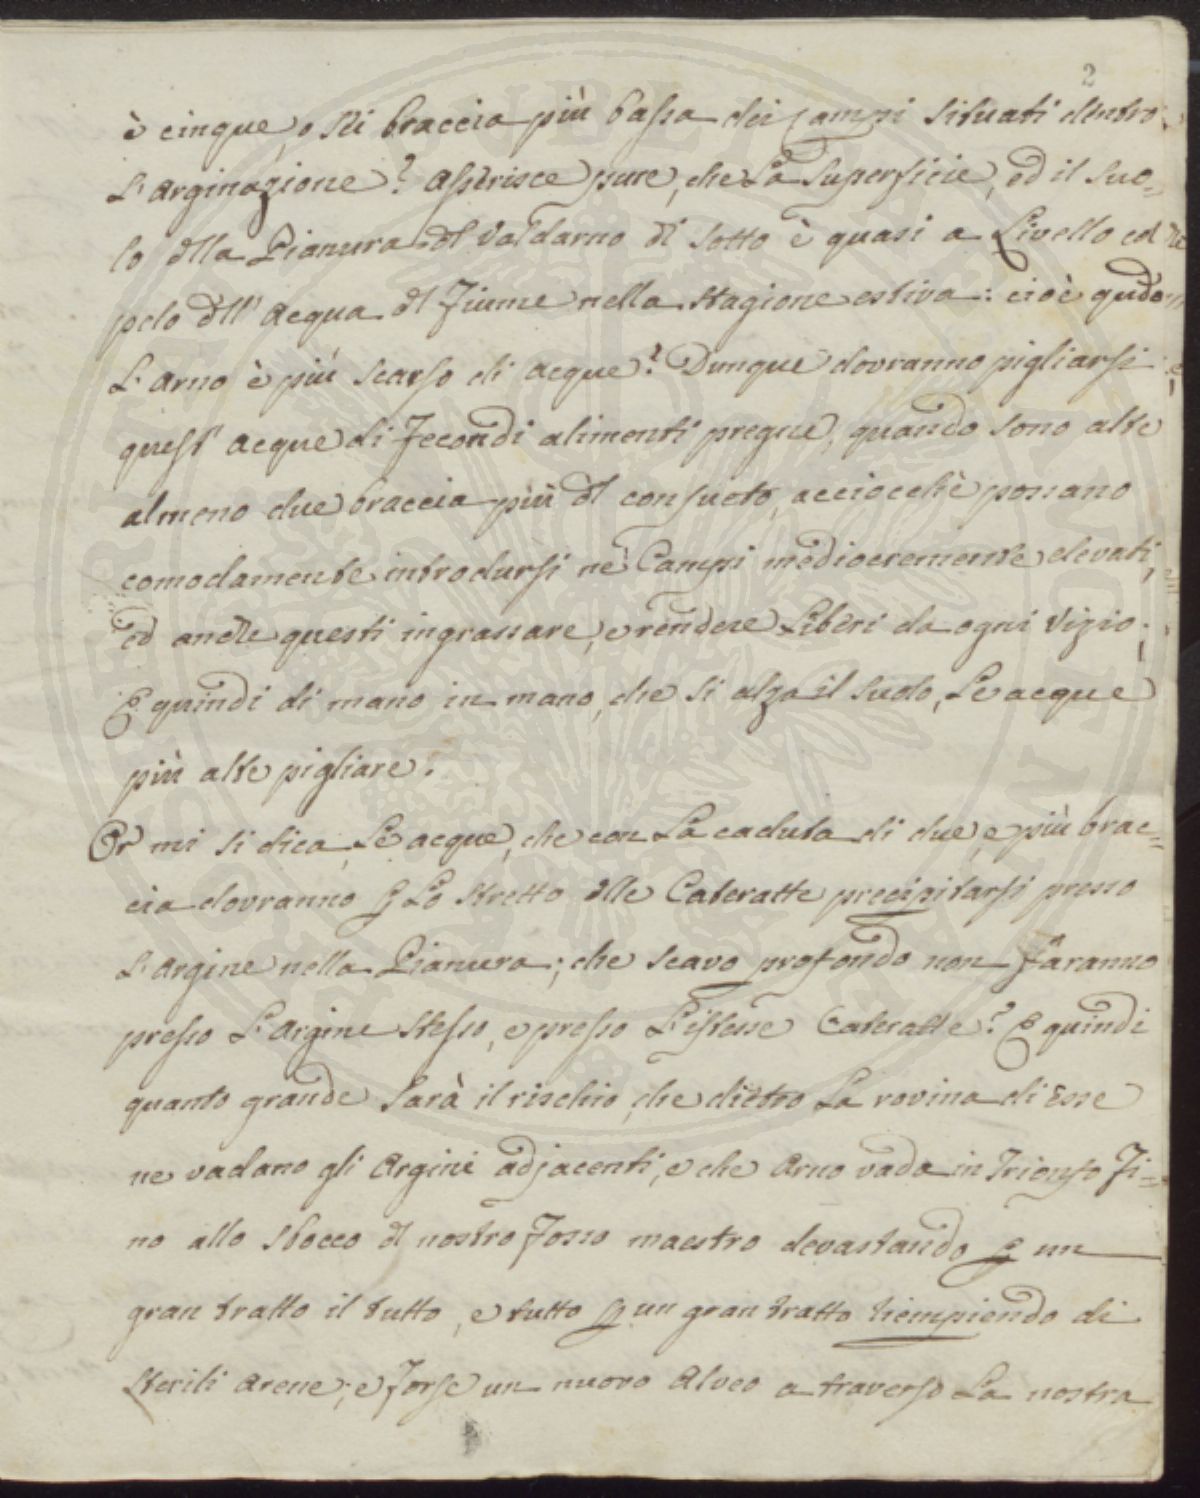 2
è cinque, o sei braccia più bassa dei Campi situati dentro
L'arginazione? Asserisce pure, che La Superficie, ed il Suo-
lo dlla Pianura dl Valdarno di Sotto è quasi a Livello col
pelo dll' acqua dl Fiume nella Stagione estiva: cioè qudo
L'Arno è più scarso di acque? Dunque dovranno pigliarsi
quest' acque di Fecondi alimenti pregne, quando sono alte
almeno due braccia più dl consueto, acciocchè possano
comodamente introdursi ne' Campi mediocremente elevati,
ed anche questi ingrassare, e rendere Liberi da ogni Vizio;
E quindi di mano in mano, che si alza il suolo, Le acque
più alte pigliare.
Or mi si dica, Le acque, che con La caduta di due, e più brac-
cia dovranno p Lo stretto dlle Cateratte precipitarsi presso
L'argine nella Pianura; che scavo profondo non Faranno
presso L'Argine stesso, e presso L'istesse Cateratte? E quindi
quanto grande sarà il rischio, che dietro La rovina di Esse
ne vadano gli Argini adjacenti, e che Arno vada in Trionfo Fi-
no allo sbocco dl nostro Fosso maestro devastando p un
gran tratto il tutto, e tutto p un gran tratto riempiendo di
sterili arene; e Forse un nuovo Alveo a traverso La nostra